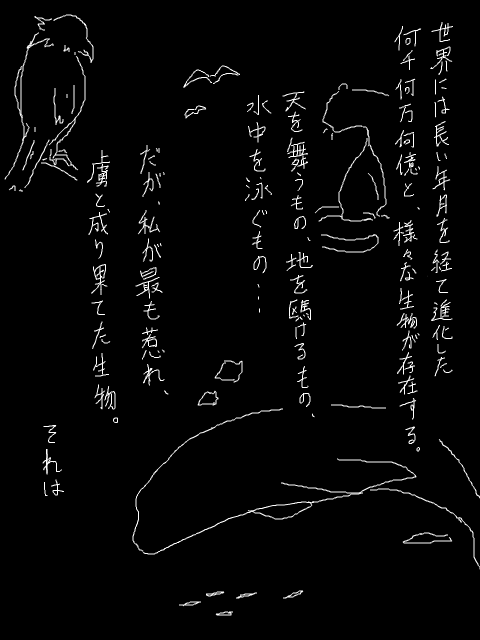 世界には長い年月を経て進化した
何千何万何億と、様々な生物が存在する。
天を舞うもの、地を鴎けるもの、
水中を泳ぐもの…
だが、私が最も惹れ、
虜と成り果てた生物。
それは